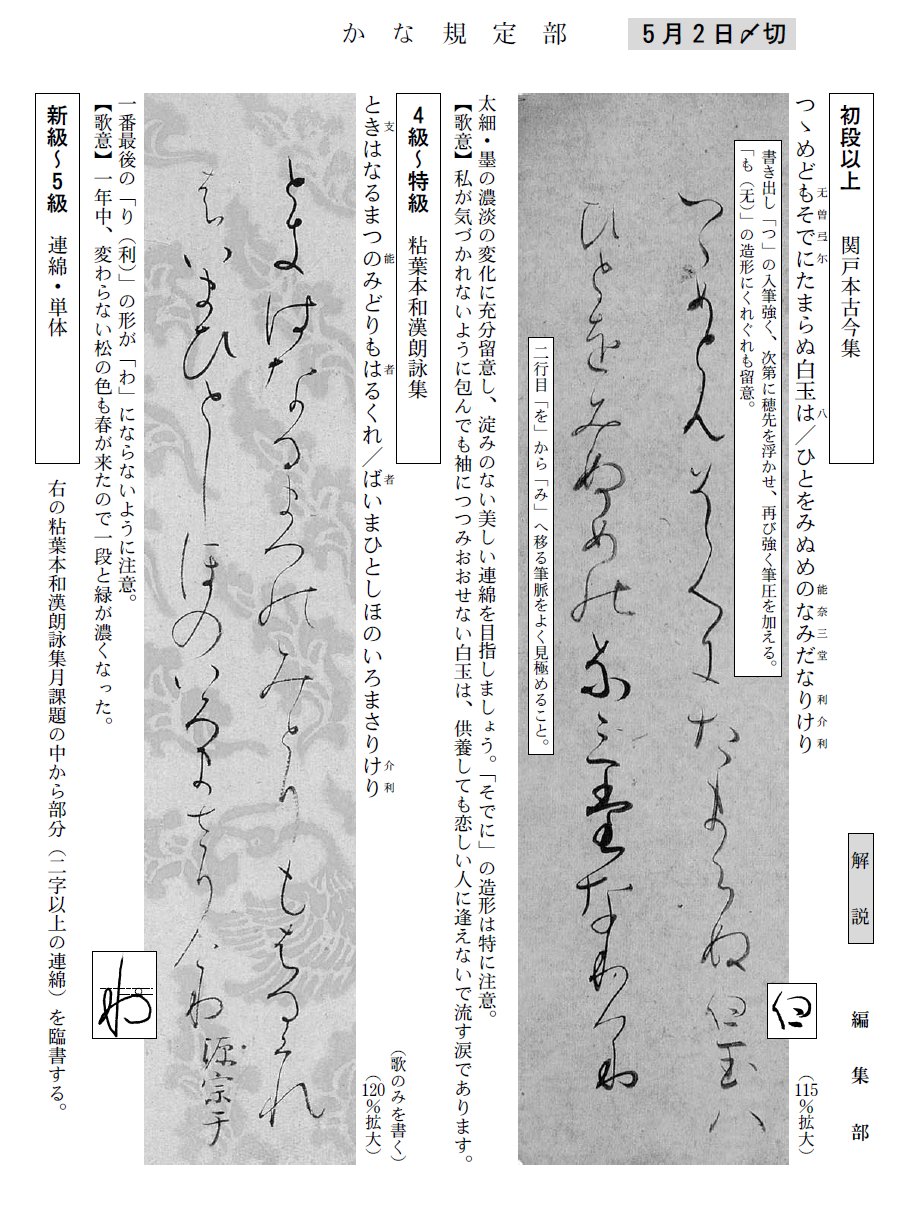 かな規定部
5月2日〆切
初段以上　関戸本古今集
解説　編集部
つゝめどもそでにたまらぬ白玉は／ひとをみぬめのなみだなりけり
无曽弖尓八能奈三堂利介利
（115％拡大）
書き出し「つ」の入筆強く、次第に穂先を浮かせ、再び強く筆圧を加える。
「も（无）」の造形にくれぐれも留意。
つゝめと无曽弖尓たまらぬ白玉八
ひとをみぬめ能奈三堂なり介利
二行目「を」から「み」へ移る筆脈をよく見極めること。
太細・墨の濃淡の変化に充分留意し、淀みのない美しい連綿を目指しましょう。「そでに」の造形は特に注意。
【歌意】私が気づかれないように包んでも袖につつみおおせない白玉は、供養しても恋しい人に逢えないで流す涙であります。
4級～特級　粘葉本和漢朗詠集
ときはなるまつのみどりもはるくれ／ばいまひとしほのいろまさりけり
支能者者介利
（歌のみを書く）
（120％拡大）
と支はなるまつ能みとりも者るくれ
者いまひとしほのいろまさり介利　源宗于
一番最後の「り（利）」の形が「わ」にならないように注意。
【歌意】一年中、変わらない松の色も春が来たので一段と緑が濃くなった。
新級～5級　連綿・単体
右の粘葉本和漢朗詠集月課題の中から部分（二字以上の連綿）を臨書する。